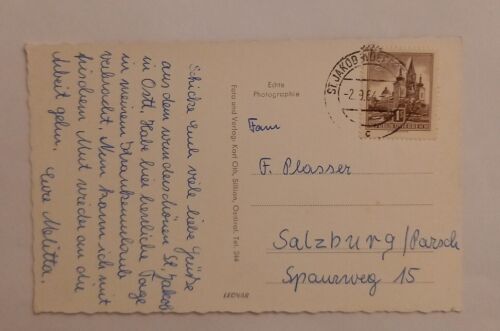 Schicke Euch viele liebe Grüße
aus dem wunderschönen St. Jakob
in Ostt. Habe hier herrliche Tage
in meinem
verbracht. Nun kann ich mit
frischem Mut wieder an die
Arbeit gehn. Eure Melitta.
Echte
Photographie
Foto und Verlag: Karl Oth, Sillian, Osttirol, Tel. 266
LEONAR
ST. JAKOB
-2.9.64
c
1S
REPUBLIK ÖSTERREICH
Fam
F. Plasser
Salzburg/Parsch
Spaurweg 15